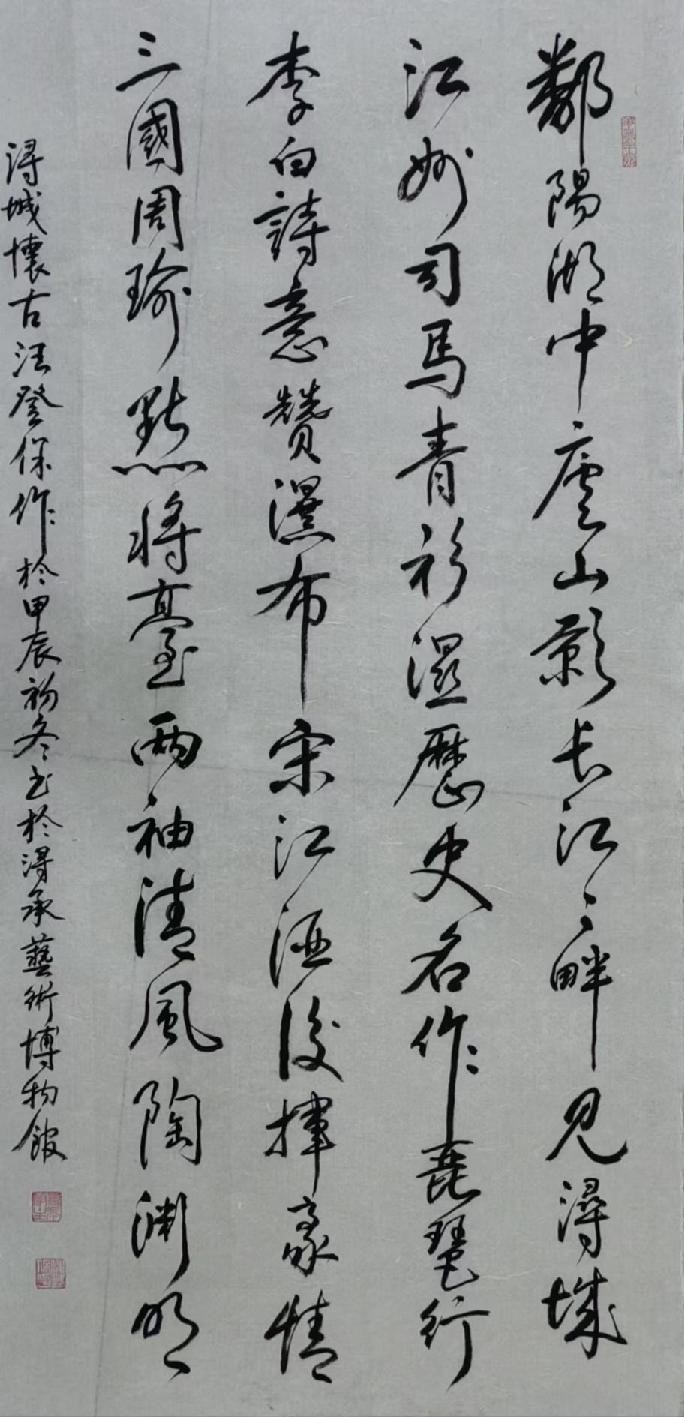 鄱陽湖中廬山影長江之畔見潯城
江州司馬青衫濕歷史名作琵琶行
李白詩意贊瀑布宋江酒後揮豪情
三國周瑜點將臺兩袖清風陶渊明
潯城懷古汪登保作於甲辰初冬书於得承藝術博物館